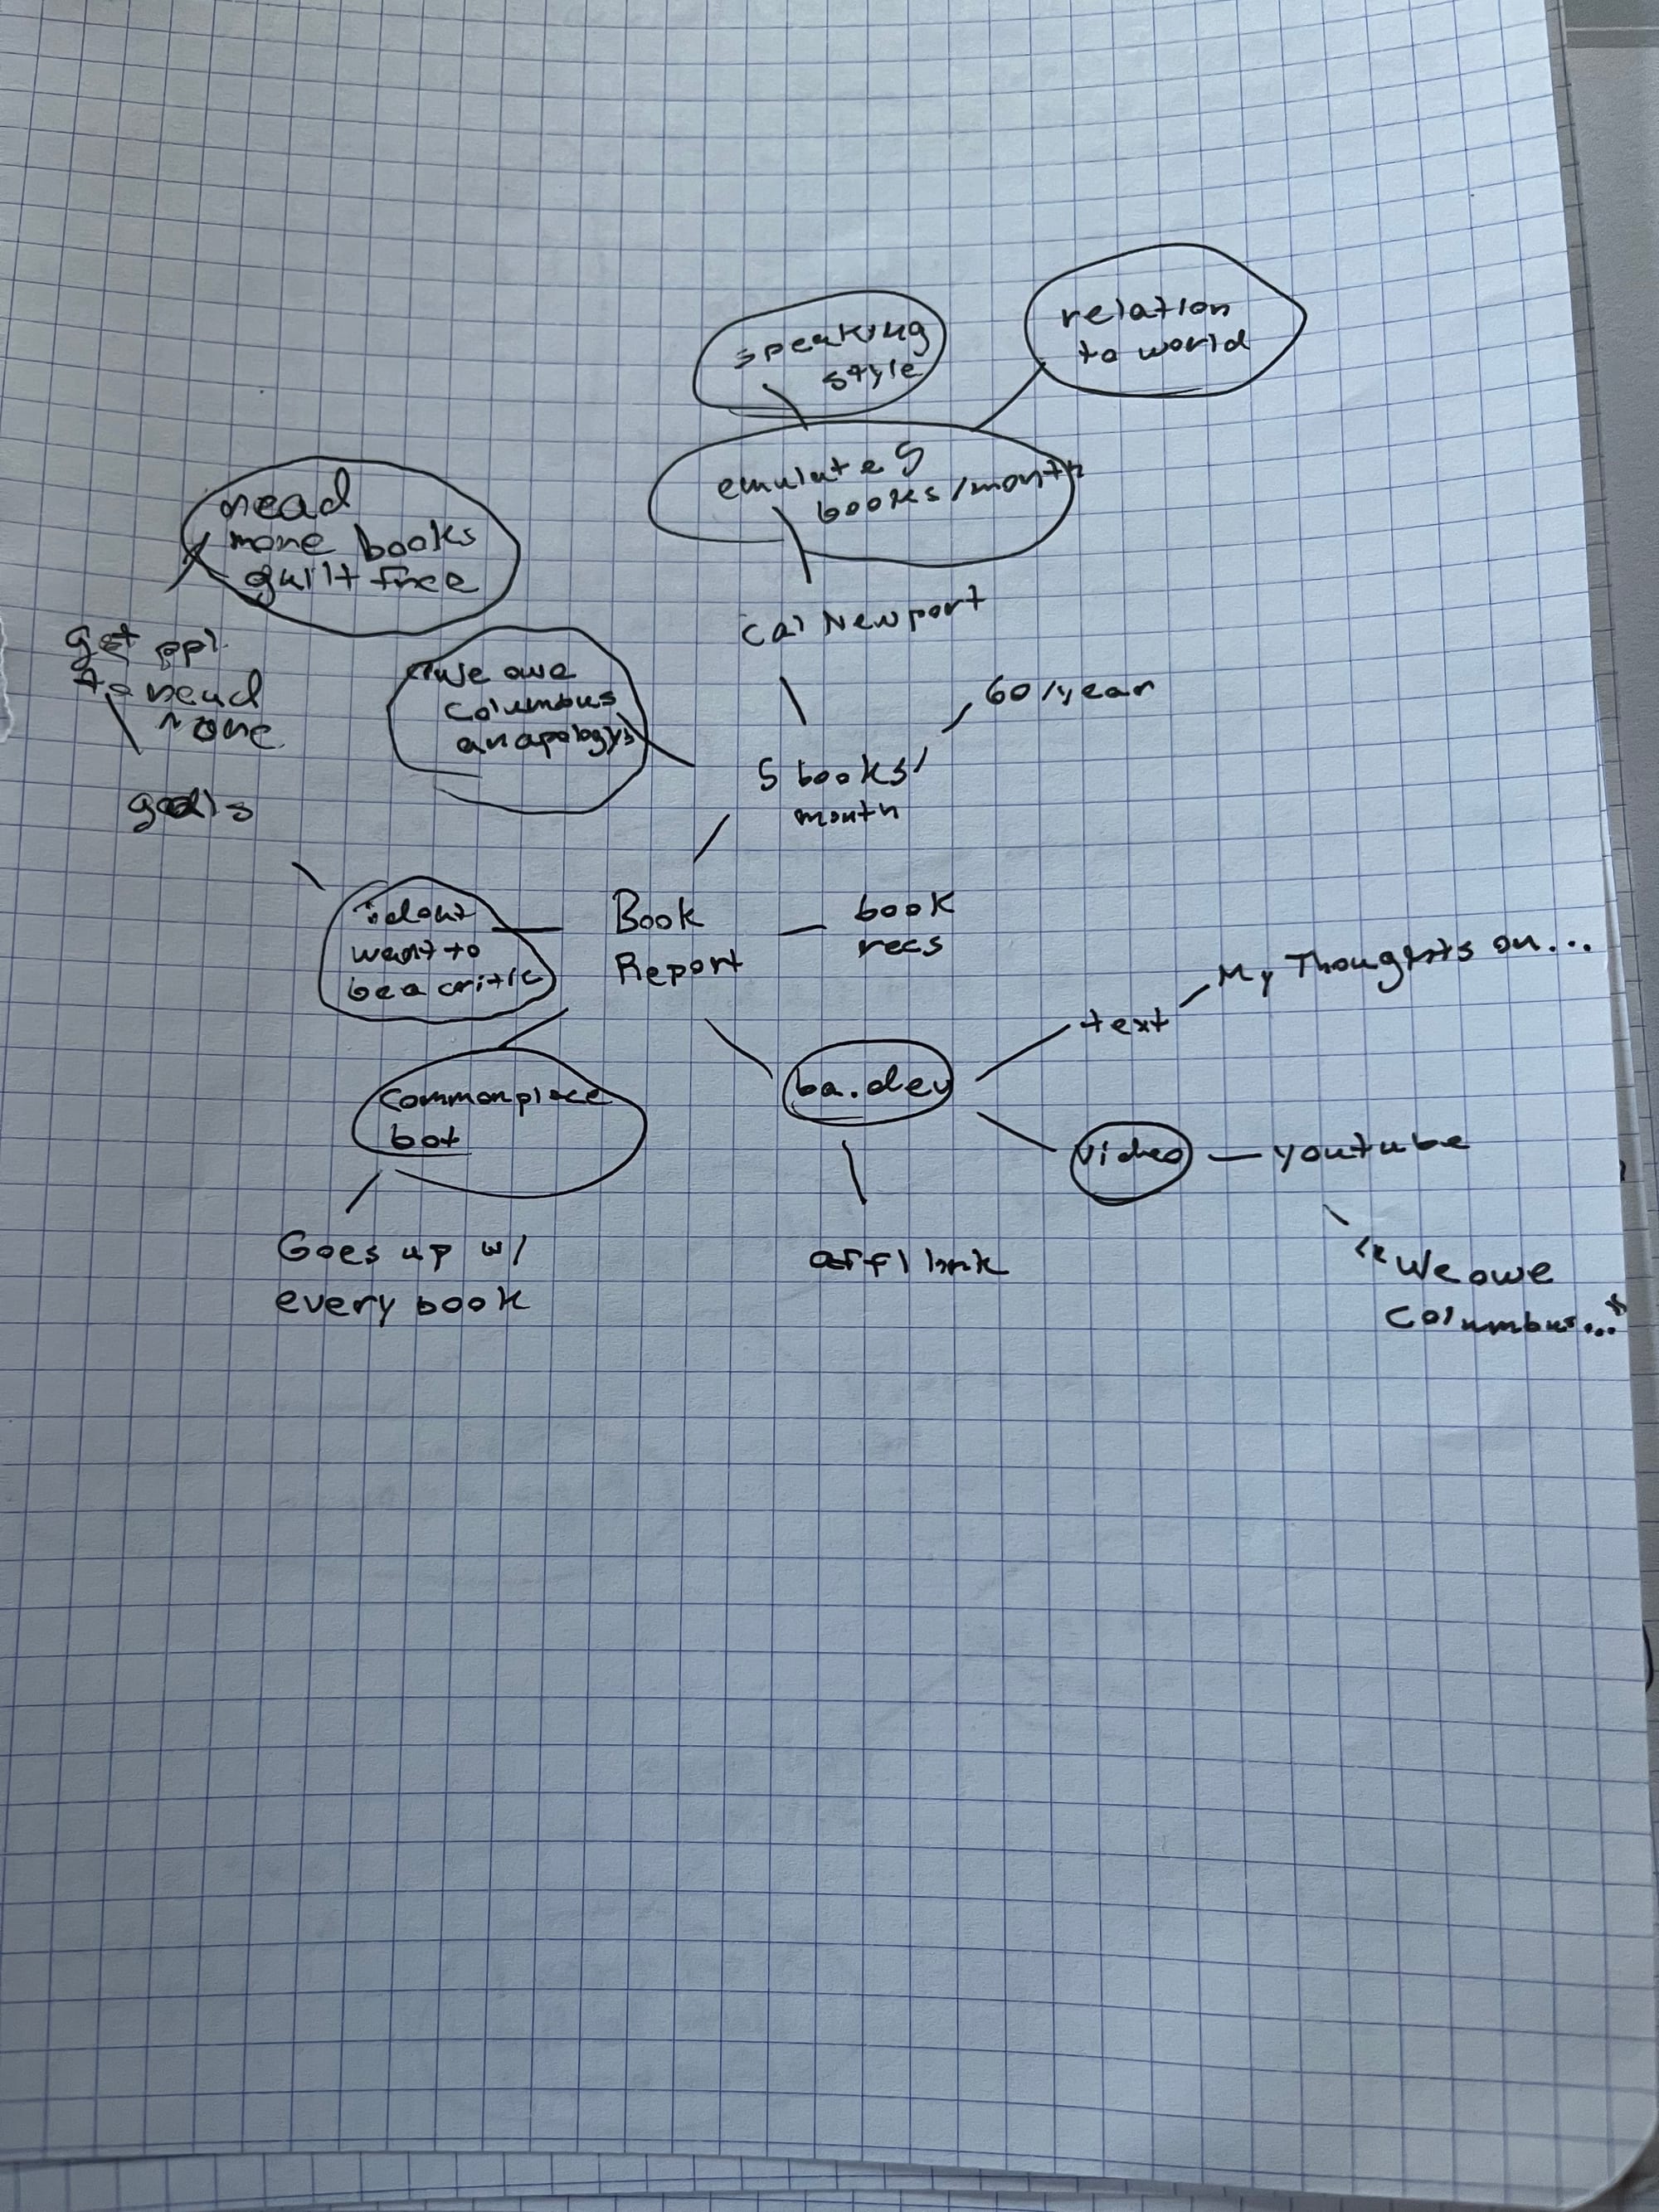 speaking
style
relation
to world
emulate 5
books/month
read
more books
guilt free
Cal Newport
get ppl
to read
more
"we owe
Columbus
an apology"
60/year
5 books/
month
goals
i dont
want to
be a critic
Book
Report
book
recs
My Thoughts on...
text
ba.dev
commonplace
bot
video
youtube
Goes up w/
every book
affl link
"We owe
Columbus..."